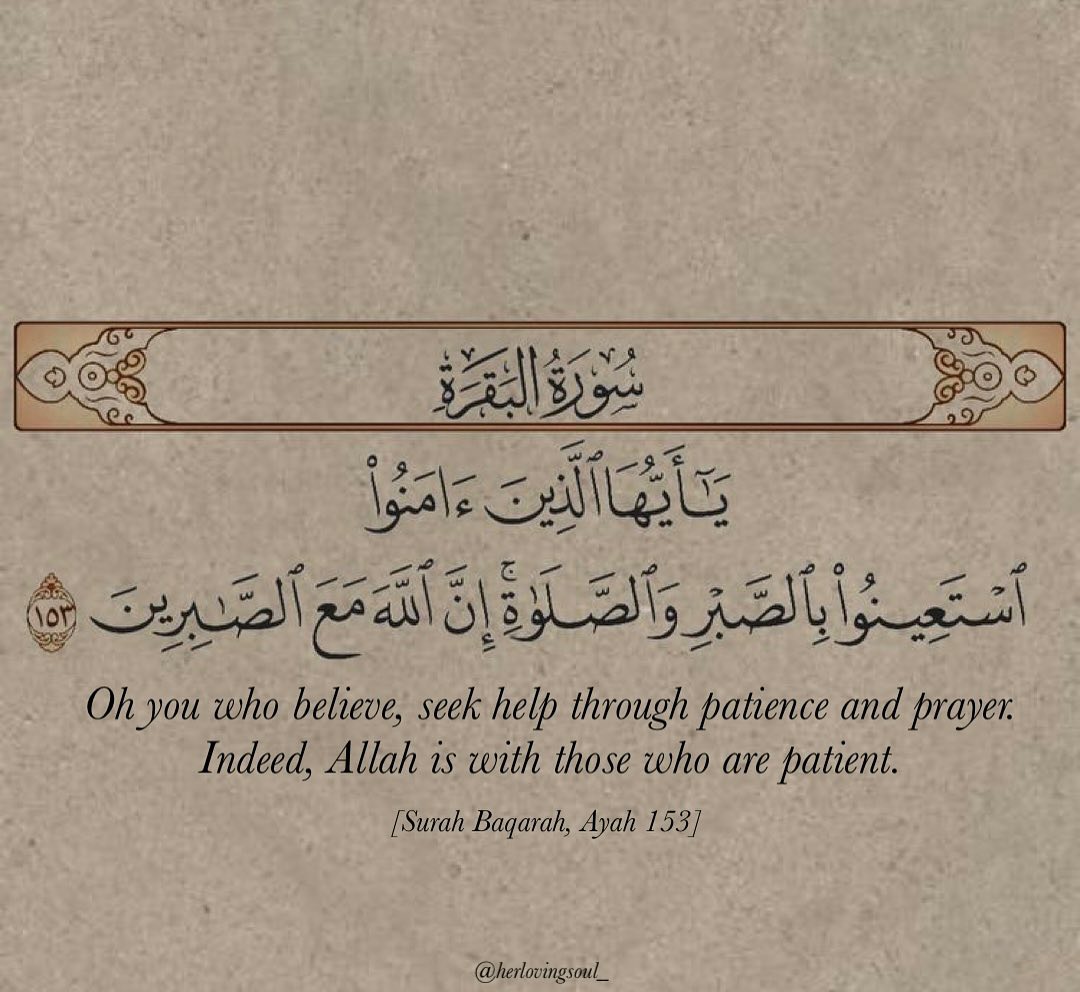 سُورَةُ البَقَرَةِ
يَٰٓأَيُّهَا ٱلَّذِينَ ءَامَنُوا۟
ٱسْتَعِينُوا۟ بِٱلصَّبْرِ وَٱلصَّلَوٰةِ ۚ إِنَّ ٱللَّهَ مَعَ ٱلصَّٰبِرِينَ ١٥٣
Oh you who believe, seek help through patience and prayer.
Indeed, Allah is with those who are patient.
[Surah Baqarah, Ayah 153]
@herlovingsoul_